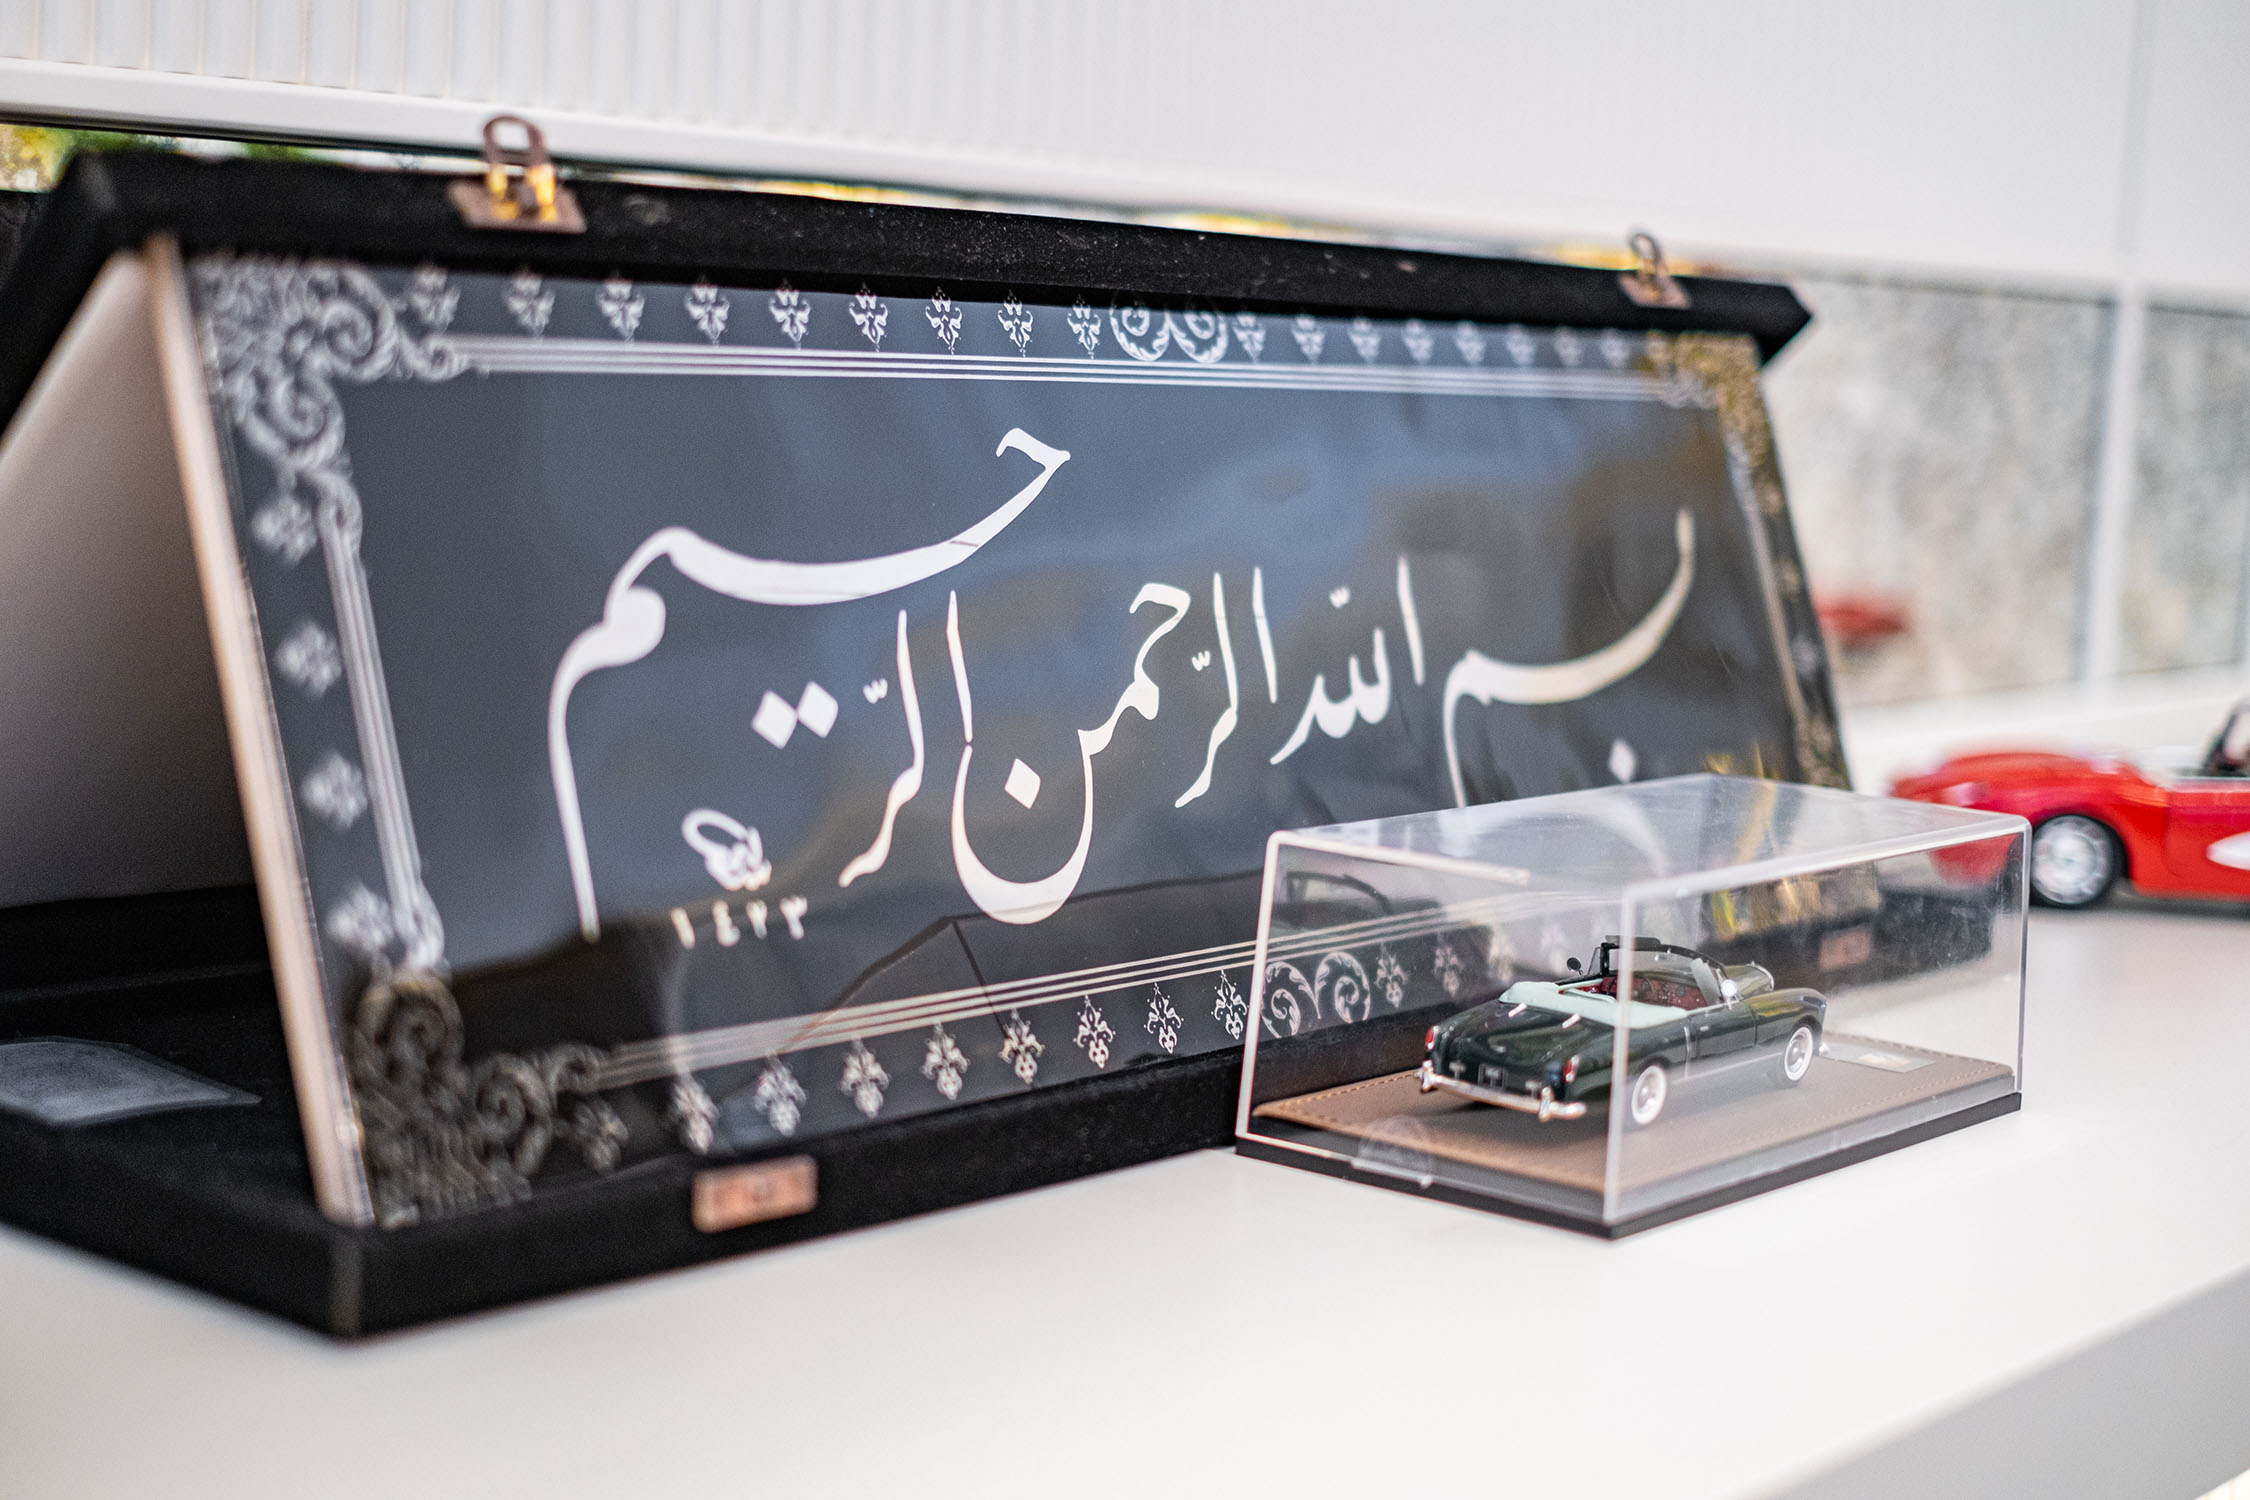 بسم الله الرّحمن الرّحیم
١٤٢٣